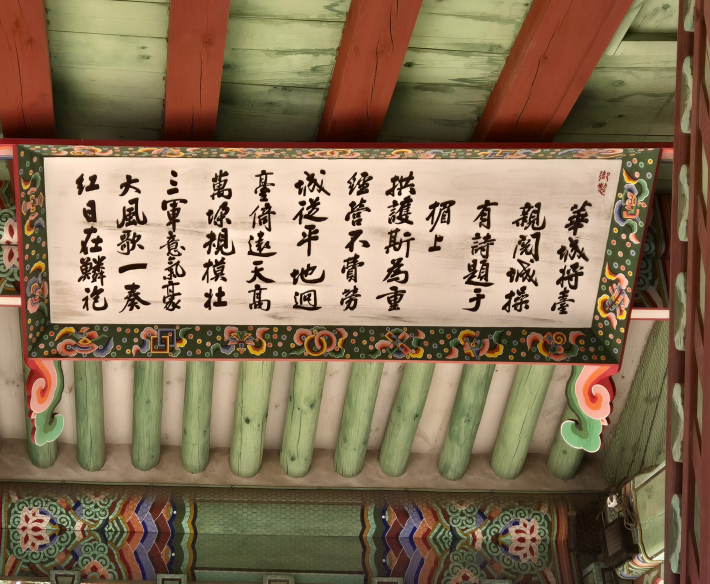 御製
華城將臺
親閱城操
有詩題于
楣上
拱護斯為重
經營不費勞
城從平地迥
臺倚遠天高
萬垛規模壯
三軍意氣豪
大風歌一奏
紅日在鱗袍